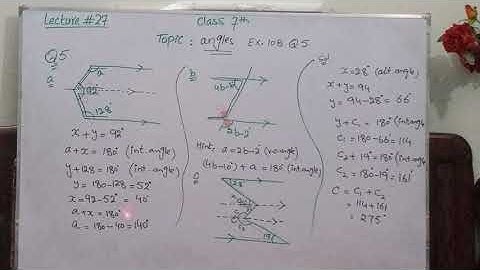 Lecture #27
Class 7th
Topic: angles Ex. 10B Q5
Q5
a
a
92°
128°
x+y = 92°
a+x = 180° (int. angle)
y+128 = 180° (int. angle)
y = 180-128 = 52°
x = 92-52° = 40°
a+x = 180°
a = 180-40 = 140°
b
4b-10°
2b-2°
Hint. a = 2b-2° (vo angle)
(4b-10) + a = 180° (int. angle)
28°
19°
x = 28° (alt. angle)
x+y = 94
y = 94-28° = 66°
y+C₁ = 180° (int. angle)
C₁ = 180-66° = 114
C₂ + 19° = 180° (int. angle)
C₂ = 180-19° = 161°
C = C₁+C₂
= 114+161
= 275°